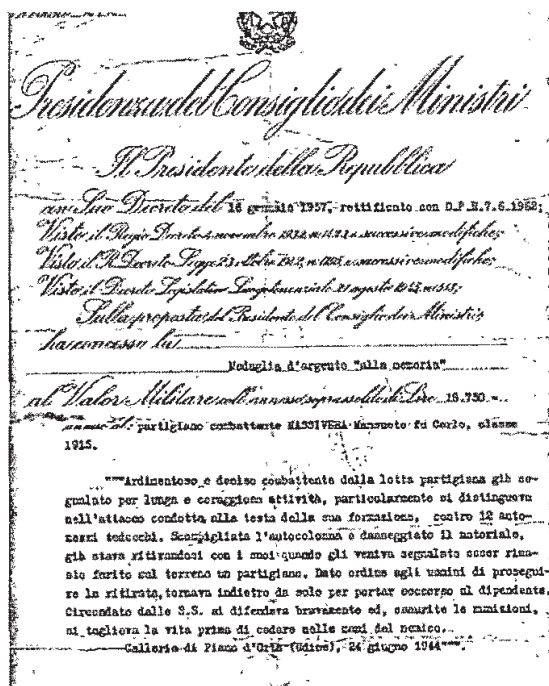 Presidenza del Consiglio dei Ministri
Il Presidente della Repubblica
con Suo Decreto del 16 gennaio 1957, rettificato con D.P.R.7.6.1962;
Visto il Regio Decreto 4 novembre 1932, n. 1423 e successive modifiche;
Visto il R. Decreto Legge 23 Ottobre 1942, n. 1195, e successive modifiche;
Visto il Decreto Legislativo Luogotenenziale 21 agosto 1945, n. 518;
Sulla proposta del Presidente del Consiglio dei Ministri;
ha concesso la
Medaglia d'argento "alla memoria"
al Valor Militare coll'annesso soprassoldo di Lire 18.750 =
annue al: partigiano combattente MASSIVERA Mansueto fu Carlo, classe
1915.
"""Ardimentoso e deciso combattente della lotta partigiana già se-
gnalato per lunga e coraggiosa attività, particolarmente si distingueva
nell'attacco condotto, alla testa della sua formazione, contro 12 auto-
mezzi tedeschi. Scompigliata l'autocolonna e danneggiato il materiale,
già stava ritirandosi con i suoi quando gli veniva segnalato esser rima-
sto ferito sul terreno un partigiano. Dato ordine agli uomini di prosegui-
re la ritirata, tornava indietro da solo per portar soccorso al dipendente.
Circondato dalle S.S. si difendeva bravamente ed, esaurite le munizioni,
si toglieva la vita prima di cadere nelle mani del nemico.
Galleria di Piano d'Orta (Udine), 24 giugno 1944""".